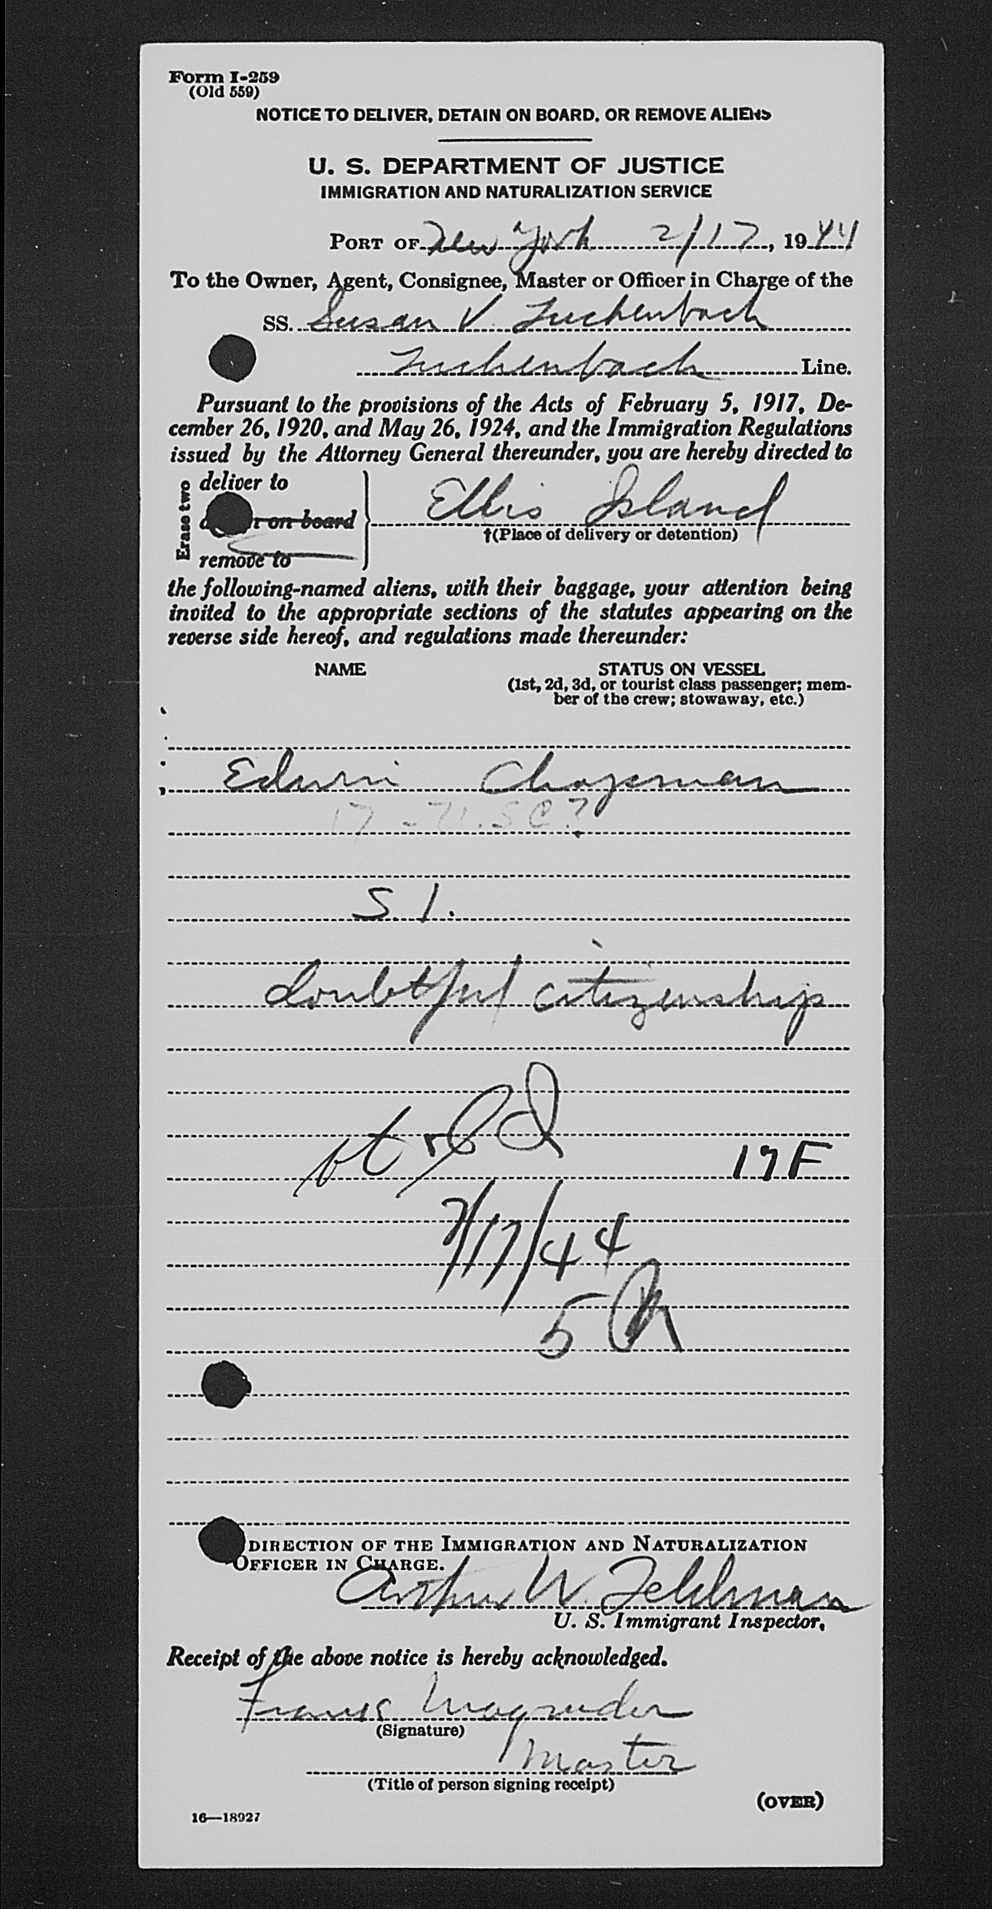 Form I-259
(Old 559)
NOTICE TO DELIVER, DETAIN ON BOARD, OR REMOVE ALIENS
U. S. DEPARTMENT OF JUSTICE
IMMIGRATION AND NATURALIZATION SERVICE
PORT OF New York 2/17, 1944
To the Owner, Agent, Consignee, Master or Officer in Charge of the
SS. Susan V. Luckenbach
Luckenbach Line.
Pursuant to the provisions of the Acts of February 5, 1917, De-
cember 26, 1920, and May 26, 1924, and the Immigration Regulations
issued by the Attorney General thereunder, you are hereby directed to
Erase two
deliver to
on board
remove to
Ellis Island
†(Place of delivery or detention)
the following-named aliens, with their baggage, your attention being
invited to the appropriate sections of the statutes appearing on the
reverse side hereof, and regulations made thereunder:
NAME
STATUS ON VESSEL
(1st, 2d, 3d, or tourist class passenger; mem-
ber of the crew; stowaway, etc.)
Edwin Chapman
17 - U.S.C?
S. I.
doubtful citizenship
17F
2/17/44
5
DIRECTION OF THE IMMIGRATION AND NATURALIZATION
OFFICER IN CHARGE.
Arthur W. Feldman
U. S. Immigrant Inspector,
Receipt of the above notice is hereby acknowledged.
Frank Magruder
(Signature)
Master
(Title of person signing receipt)
(OVER)
16—18927